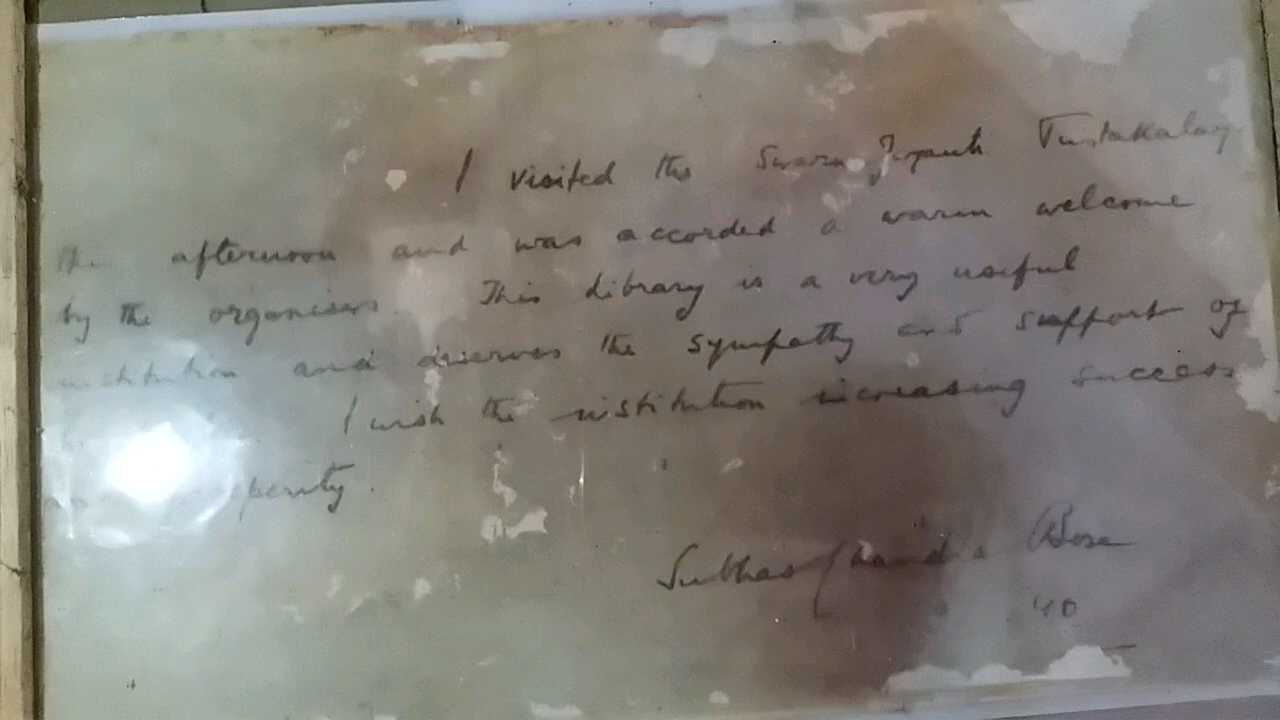 I visited the Swarna Jayanti Pustakalay
the afternoon and was accorded a warm welcome
by the organisers. This library is a very useful
institution and deserves the sympathy and support of
I wish the institution increasing success
perity.
Subhas Chandra Bose
40